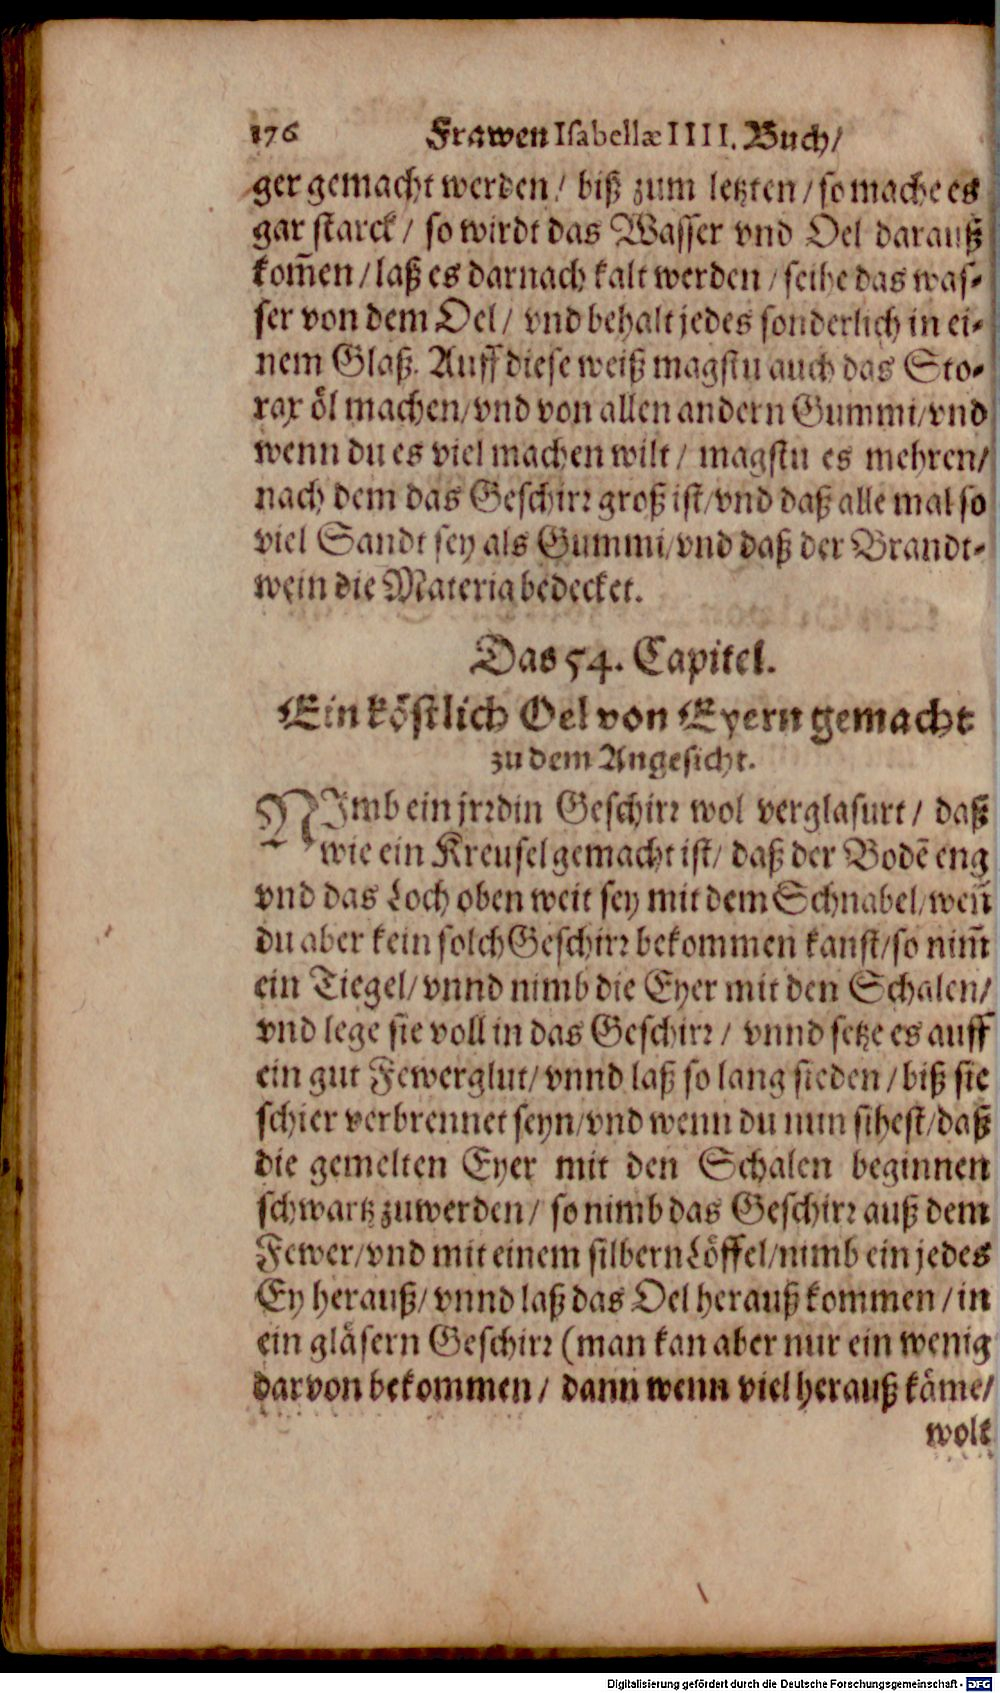 176 Frawen Isabellæ IIII. Buch/
ger gemacht werden/ biß zum letzten/ so mache es
gar starck/ so wirdt das Wasser vnd Oel darauß
kom̃en/ laß es darnach kalt werden/ seihe das was-
ser von dem Oel/ vnd behalt jedes sonderlich in ei-
nem Glaß. Auff diese weiß magstu auch das Sto-
rax öl machen/ vnd von allen andern Gummi/ vnd
wenn du es viel machen wilt/ magstu es mehren/
nach dem das Geschirr groß ist/ vnd daß alle mal so
viel Sandt sey als Gummi/ vnd daß der Brandt-
wein die Materia bedecket.
Das 54. Capitel.
Ein köstlich Oel von Eyern gemacht
zu dem Angesicht.
NImb ein jrrdin Geschirr wol verglasurt/ daß
wie ein Kreusel gemacht ist/ daß der Bodẽ eng
vnd das Loch oben weit sey mit dem Schnabel/ weñ
du aber kein solch Geschirr bekommen kanst/ so nim̃
ein Tiegel/ vnnd nimb die Eyer mit den Schalen/
vnd lege sie voll in das Geschirr/ vnnd setze es auff
ein gut Fewerglut/ vnnd laß so lang sieden/ biß sie
schier verbrennet seyn/ vnd wenn du nun sihest/ daß
die gemelten Eyer mit den Schalen beginnen
schwartz zuwerden/ so nimb das Geschirr auß dem
Fewer/ vnd mit einem silbern Löffel/ nimb ein jedes
Ey herauß/ vnnd laß das Oel herauß kommen/ in
ein gläsern Geschirr (man kan aber nur ein wenig
darvon bekommen/ dann wenn viel herauß käme/
wolt
Digitalisierung gefördert durch die Deutsche Forschungsgemeinschaft - DFG